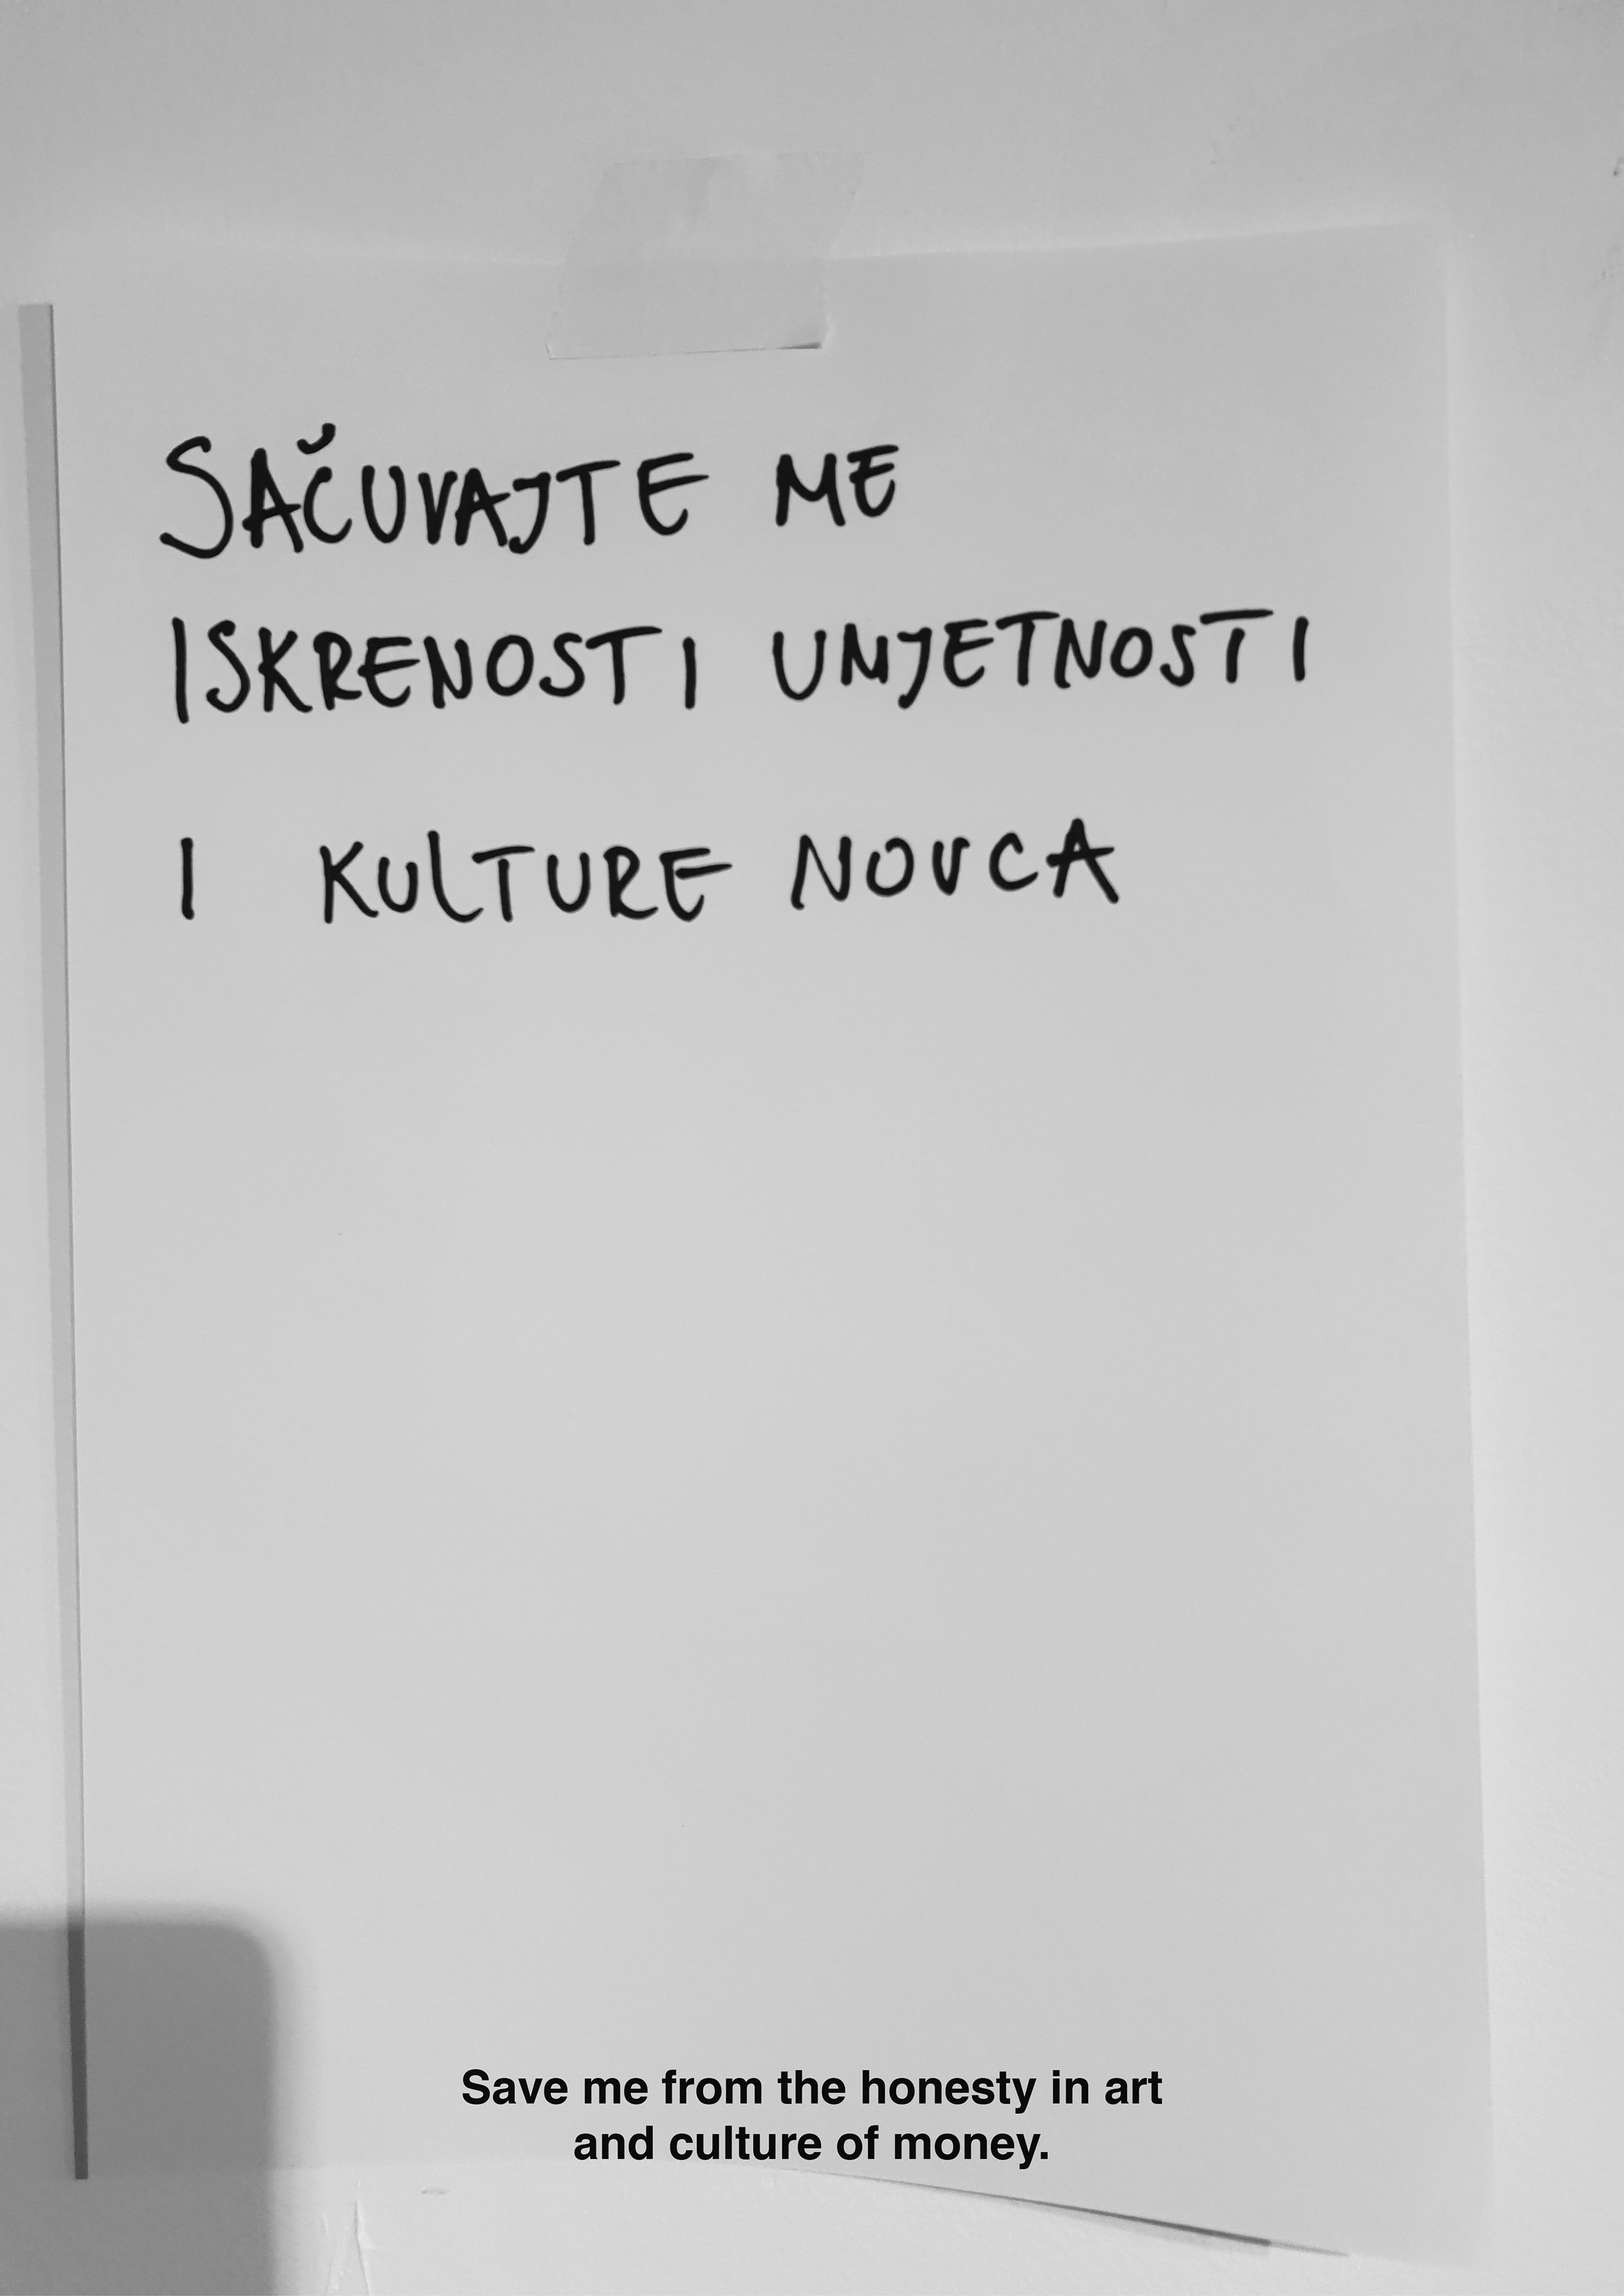 SAČUVAJTE ME
ISKRENOSTI UMJETNOSTI
I KULTURE NOVCA
Save me from the honesty in art
and culture of money.